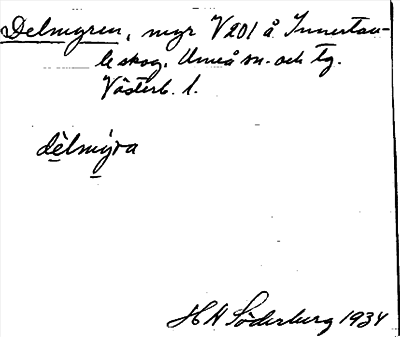 Delmyren, myr V201 å Innertav-
le skog. Umeå sn. och tg.
Västerb. l.
dèlmýra
H A Söderberg 1934